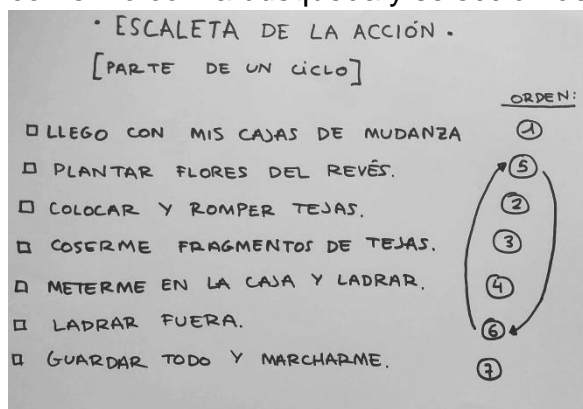 • ESCALETA DE LA ACCIÓN •
[PARTE DE UN CICLO]
ORDEN:
□ LLEGO CON MIS CAJAS DE MUDANZA 1
□ PLANTAR FLORES DEL REVÉS. 5
□ COLOCAR Y ROMPER TEJAS. 2
□ COSERME FRAGMENTOS DE TEJAS. 3
□ METERME EN LA CAJA Y LADRAR. 4
□ LADRAR FUERA. 6
□ GUARDAR TODO Y MARCHARME. 7